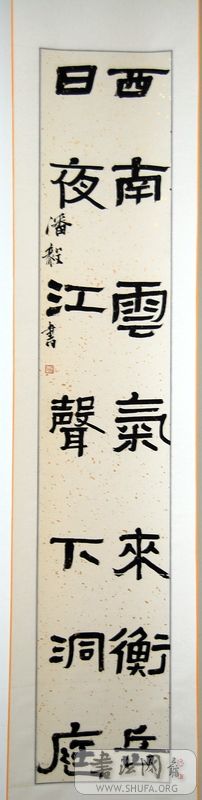 西南雲氣來衡岳
日夜江聲下洞庭
潘毅書
書法网
WWW.SHUFA.ORG